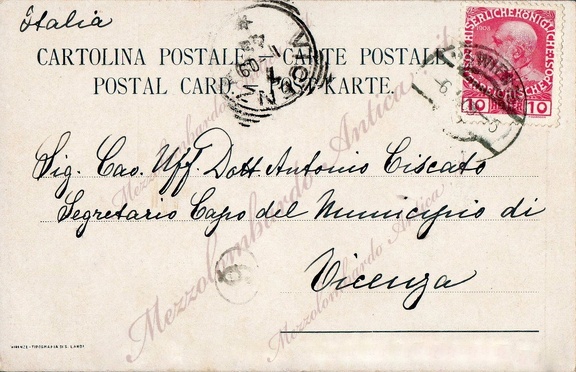 Italia
CARTOLINA POSTALE. CARTE POSTALE.
POSTAL CARD. POSTKARTE.
KAISERLICHE KÖNIGLICHE
1908
10 HELLER 10
WIEN
VICENZA
Sig. Cav. Uff. Dott. Antonio Ciscato
Segretario Capo del Municipio di
Vicenza
9
FIRENZE - TIPOGRAFIA DI S. LANDI
Mezzolombardo Antica
Mezzolombardo Antica